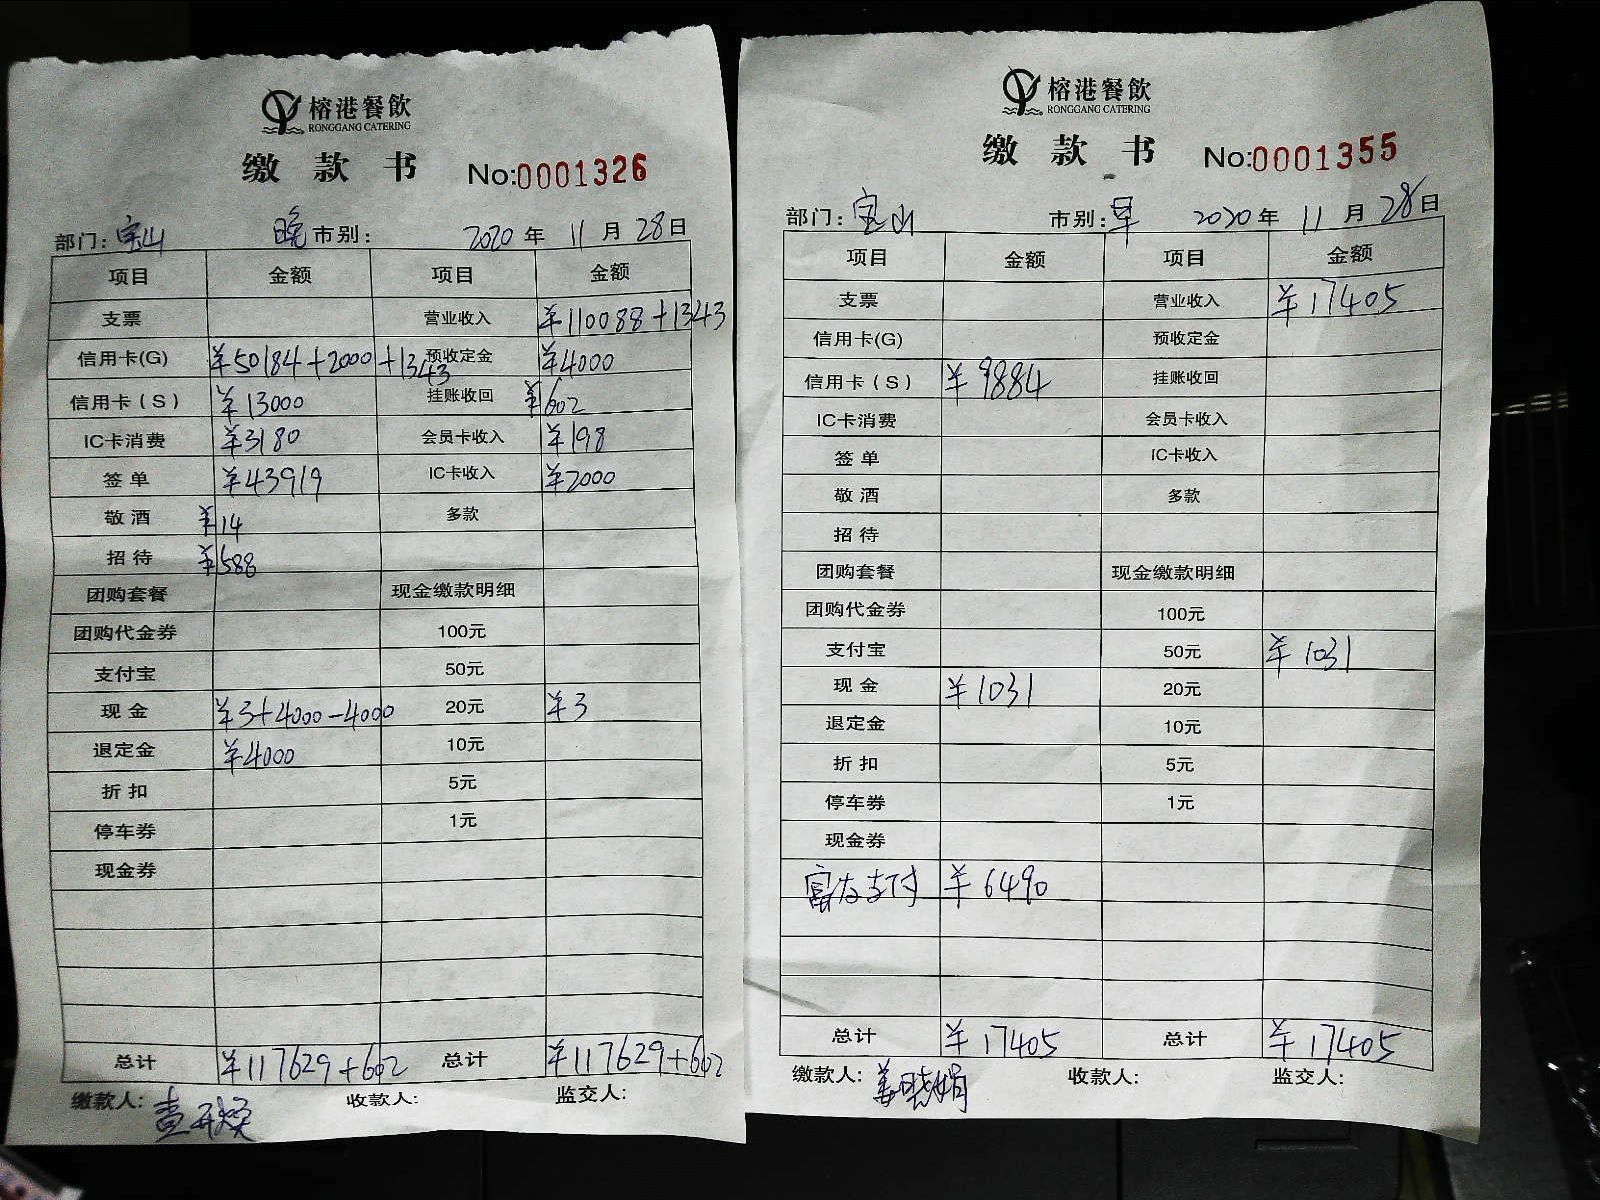 榕港餐飲
RONGGANG CATERING
缴款书 No:0001326
部门:宝山 晚市别: 2020年11月28日
项目 金额 项目 金额
支票 营业收入 ¥110088+1343
信用卡(G) ¥50184+2000+1343 预收定金 ¥4000
信用卡(S) ¥13000 挂账收回 ¥602
IC卡消费 ¥3180 会员卡收入 ¥198
签单 ¥43919 IC卡收入 ¥2000
敬酒 ¥14 多款
招待 ¥588
团购套餐 现金缴款明细
团购代金券 100元
支付宝 50元
现金 ¥3+4000-4000 20元 ¥3
退定金 ¥4000 10元
折扣 5元
停车券 1元
现金券
总计 ¥117629+602 总计 ¥117629+602
缴款人: 收款人: 监交人:
榕港餐飲
RONGGANG CATERING
缴款书 No:0001355
部门:宝山 市别:早 2020年11月28日
项目 金额 项目 金额
支票 营业收入 ¥17405
信用卡(G) 预收定金
信用卡(S) ¥9884 挂账收回
IC卡消费 会员卡收入
签单 IC卡收入
敬酒 多款
招待
团购套餐 现金缴款明细
团购代金券 100元
支付宝 50元 ¥1031
现金 ¥1031 20元
退定金 10元
折扣 5元
停车券 1元
现金券
富友支付 ¥6490
总计 ¥17405 总计 ¥17405
缴款人:姜晓娟 收款人: 监交人: